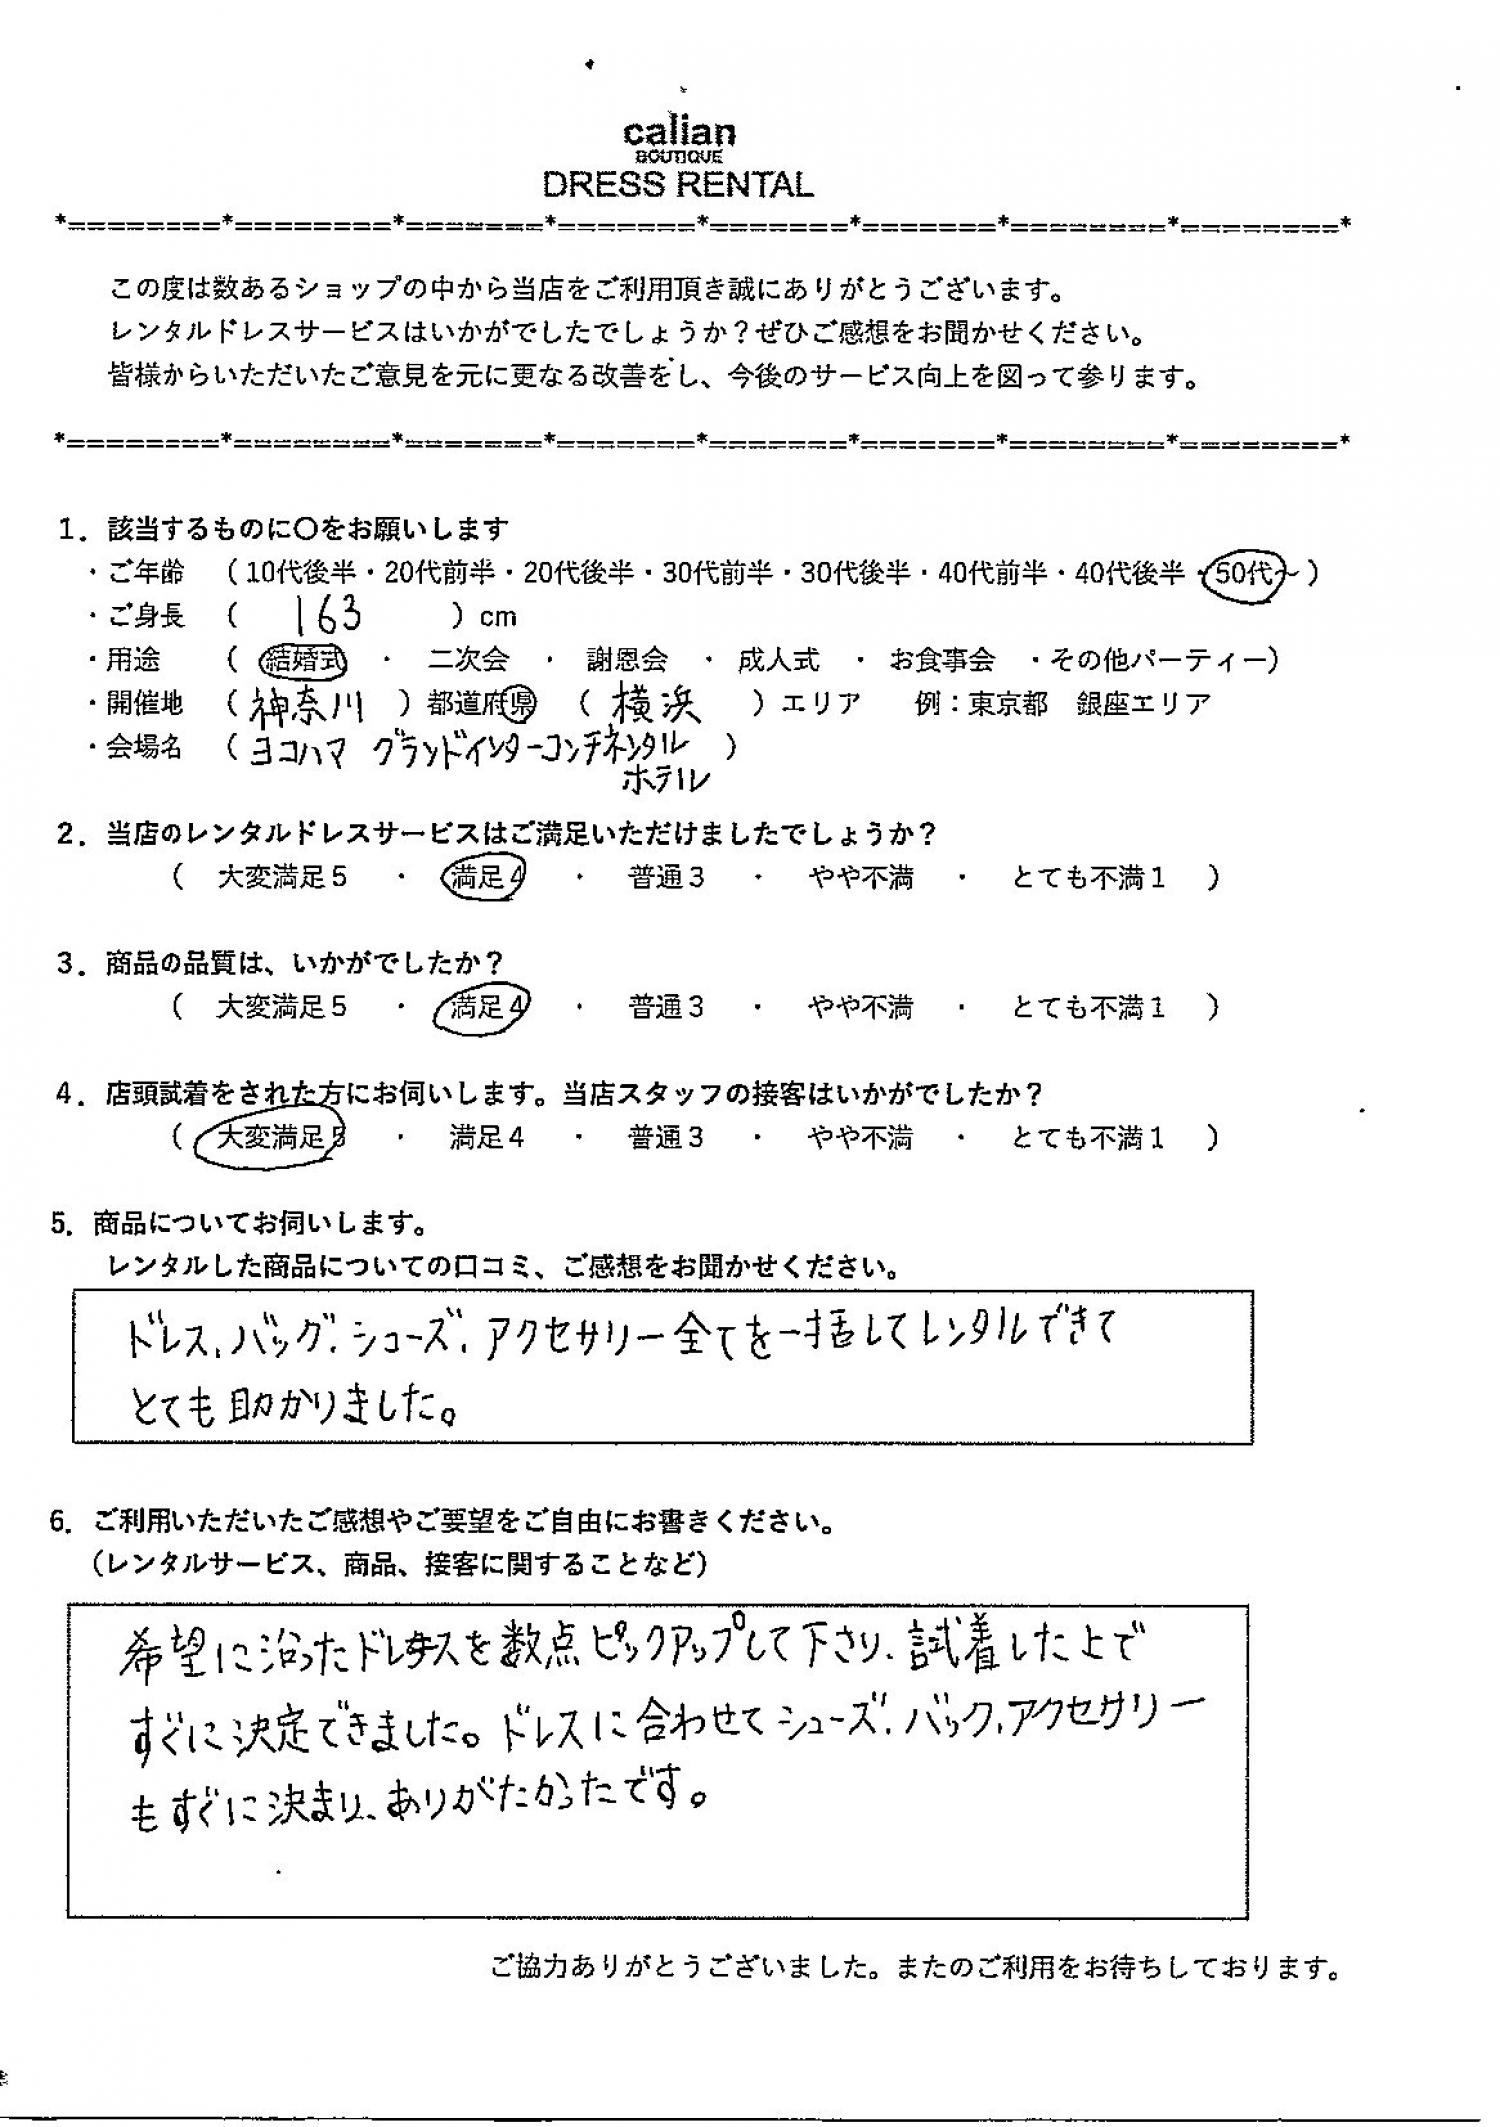 calian
BOUTIQUE
DRESS RENTAL
*========*========*=======*=======*=======*=======*========*========*
この度は数あるショップの中から当店をご利用頂き誠にありがとうございます。
レンタルドレスサービスはいかがでしたでしょうか？ぜひご感想をお聞かせください。
皆様からいただいたご意見を元に更なる改善をし、今後のサービス向上を図って参ります。
*========*========*=======*=======*=======*=======*========*========*
1．該当するものに〇をお願いします
・ご年齢 （10代後半・20代前半・20代後半・30代前半・30代後半・40代前半・40代後半・50代～）
・ご身長 （ 163 ）cm
・用途 （ 結婚式 ・ 二次会 ・ 謝恩会 ・ 成人式 ・ お食事会 ・その他パーティー）
・開催地 （ 神奈川 ）都道府県 （ 横浜 ）エリア 例：東京都 銀座エリア
・会場名 （ ヨコハマ グランドインターコンチネンタル ）
ホテル
2．当店のレンタルドレスサービスはご満足いただけましたでしょうか？
（ 大変満足5 ・ 満足4 ・ 普通3 ・ やや不満 ・ とても不満1 ）
3．商品の品質は、いかがでしたか？
（ 大変満足5 ・ 満足4 ・ 普通3 ・ やや不満 ・ とても不満1 ）
4．店頭試着をされた方にお伺いします。当店スタッフの接客はいかがでしたか？
（ 大変満足5 ・ 満足4 ・ 普通3 ・ やや不満 ・ とても不満1 ）
5．商品についてお伺いします。
レンタルした商品についての口コミ、ご感想をお聞かせください。
ドレス、バッグ、シューズ、アクセサリー全てを一括してレンタルできて
とても助かりました。
6．ご利用いただいたご感想やご要望をご自由にお書きください。
（レンタルサービス、商品、接客に関することなど）
希望に沿ったドレスを数点ピックアップして下さり、試着した上で
すぐに決定できました。ドレスに合わせてシューズ、バック、アクセサリー
もすぐに決まり、ありがたかったです。
ご協力ありがとうございました。またのご利用をお待ちしております。